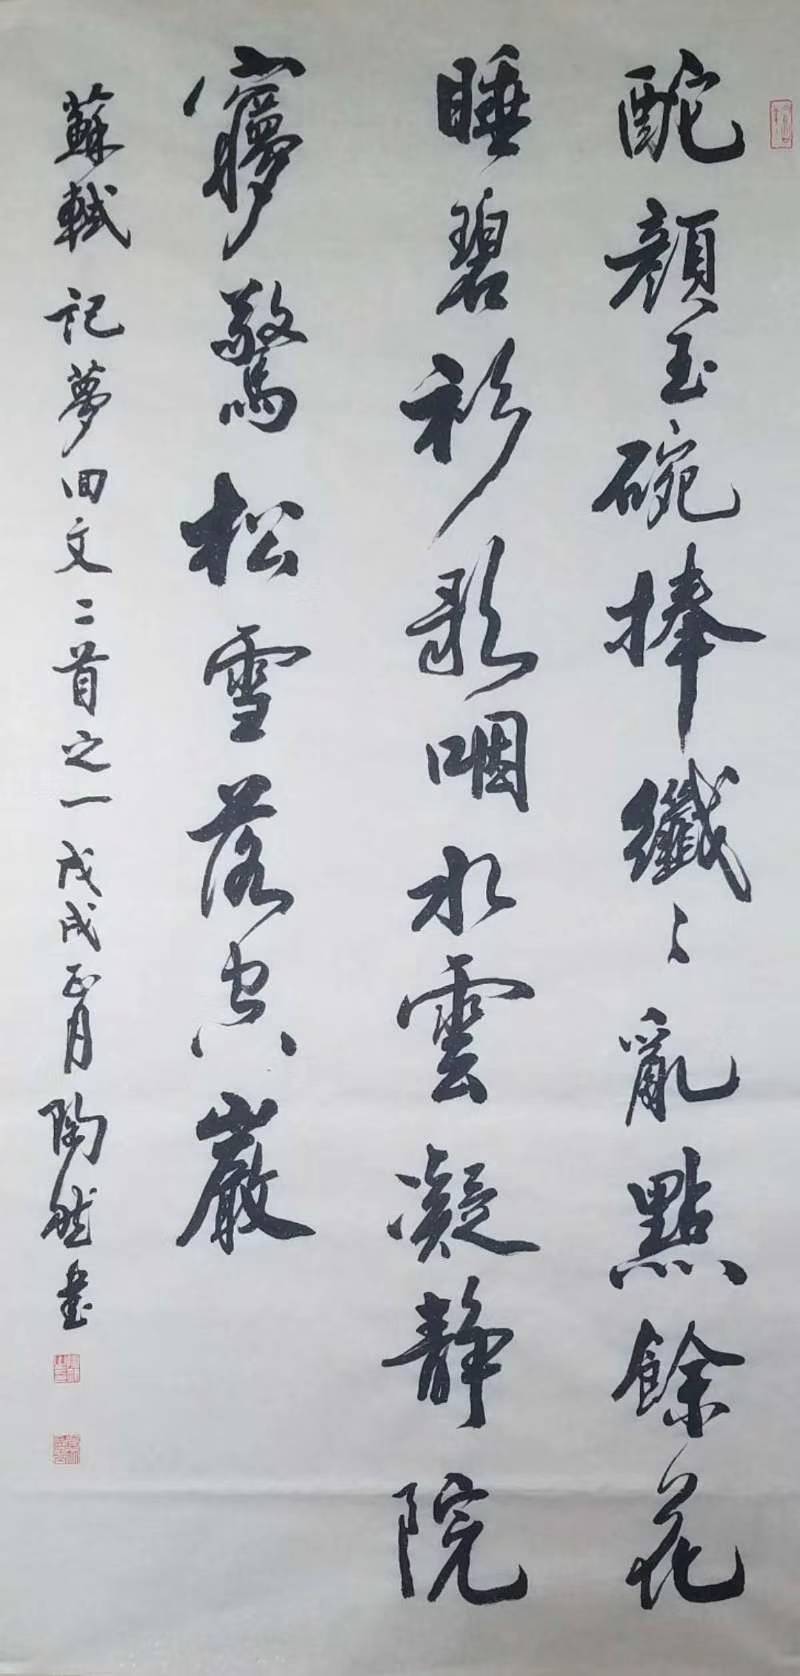 酡顏玉碗捧纖〻亂點餘花
睡碧衫歌咽水雲凝靜院
㝱驚松雪落空巖
蘇軾 記夢回文二首之一 戊戌正月 陶然書